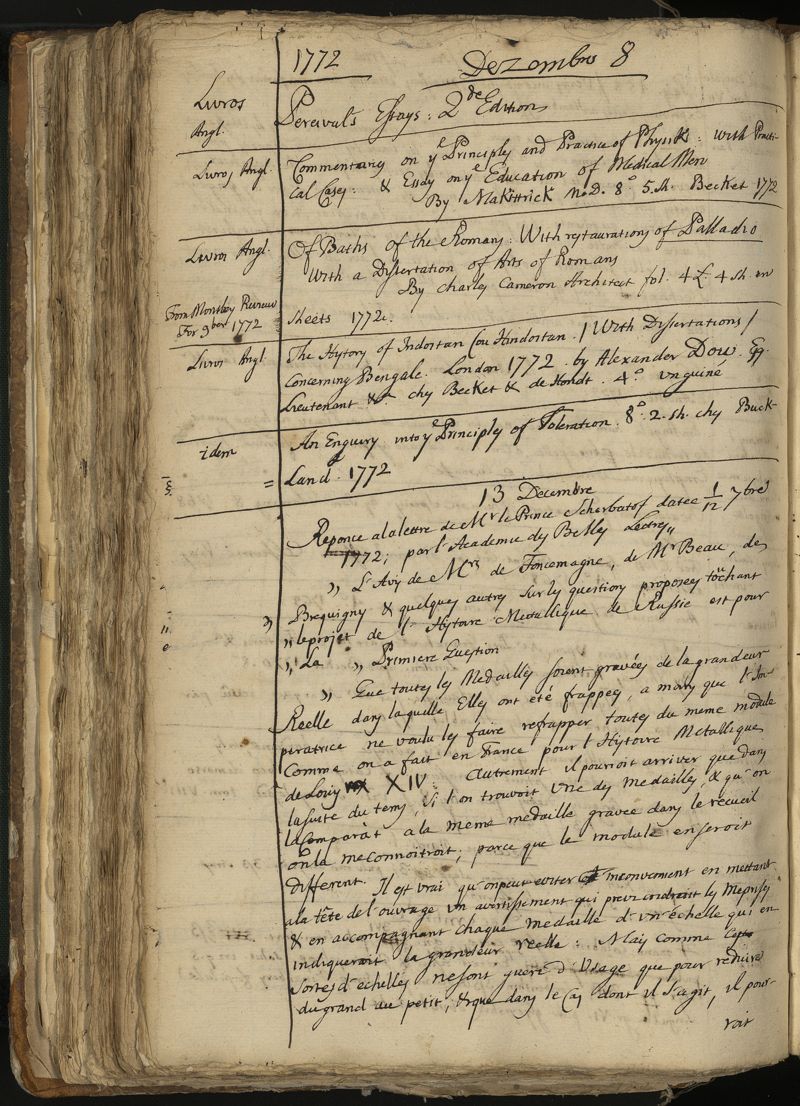 1772 Dezombro 8
Livros
Angl.
Percival's Essays: 2de Edition
Livros Angl.
Commentaries on ye Principles and Practice of Physik: With Practi-
cal Cases: & Essay on ye Education of Medical Men
By MaKittrick M.D. 8o 5.sh. Becket 1772
Livros Angl.
Of Baths of the Romans: With restaurations of Palladio
With a Dissertation of Arts of Romans
By Charles Cameron Architect fol. 4£. 4 sh en
From Monthley Rewiew
For 9ber 1772
sheets 1772.
Livros Angl
The History of Indostan (ou Hindostan. / With Dissertations /
Concerning Bengale. London 1772. by Alexander Dow. Esq.
Lieutenant &a chez Becket & de Hondt. 4o. un guiné
idem
An Enquiry into ye Principles of Toleration. 8o. 2.sh. chez Buck-
= Land. 1772
13 Decembre
Reponce a la lettre de Mr le Prince Scherbatof datée 1/12 7bre
1772; par l'Academie des Belles Lectres
" L'Avis de Mrs de Foncemagne, de Mr Beau, de
" Brequigny & quelques autres sur les questions proposées touchant
" le projet de l'Histoire Metallique de Russie est pour
" La " Premiere Question
" Que toutes les Medailles soient gravées de la grandeur
Reelle dans laquelle Elles ont été frappes, a mains que l'Im-
peratrice ne voulu les faire refrapper toutes du meme module
Comme on a fait en France pour l'Histoire Metallique
de Louis XIV. Autrement il pourroit arriver que dans
la suite du tems, si l'on trouvoit Une des medailles, & qu'on
la Comparàt a la meme medaille gravée dans le recueil
on la meconnoitroit; parce que le module en seroit
different. Il est vrai qu'on peut eviter cet inconvenient en mettant
a la tête de l'ouvrage un avertissement qui previendroit les Meprises
& en accompagnant chaque medaille d'un échelle qui en
indiqueroit la grandeur reelle: Mais comme
sortes d'echelles ne sont guere d'Usage que pour reduire
du grand au petit, & que dans le Cas dont il s'agit, il pour-
roit